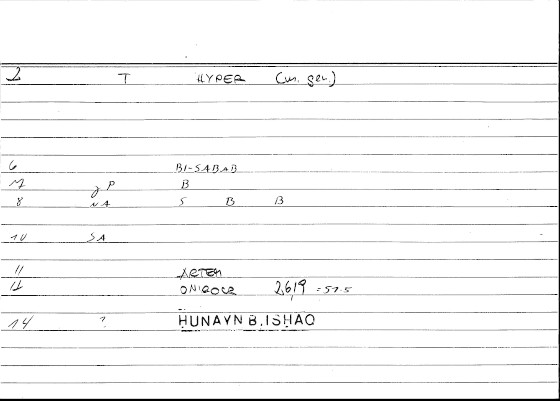 2 T HYPER (w. gen.)
6 BI-SABAB
P B
8 NA S B B
10 SA
11 ARTEM
ONIGOCR 26,9 = 57.5
14 ? HUNAYN B. ISHAQ